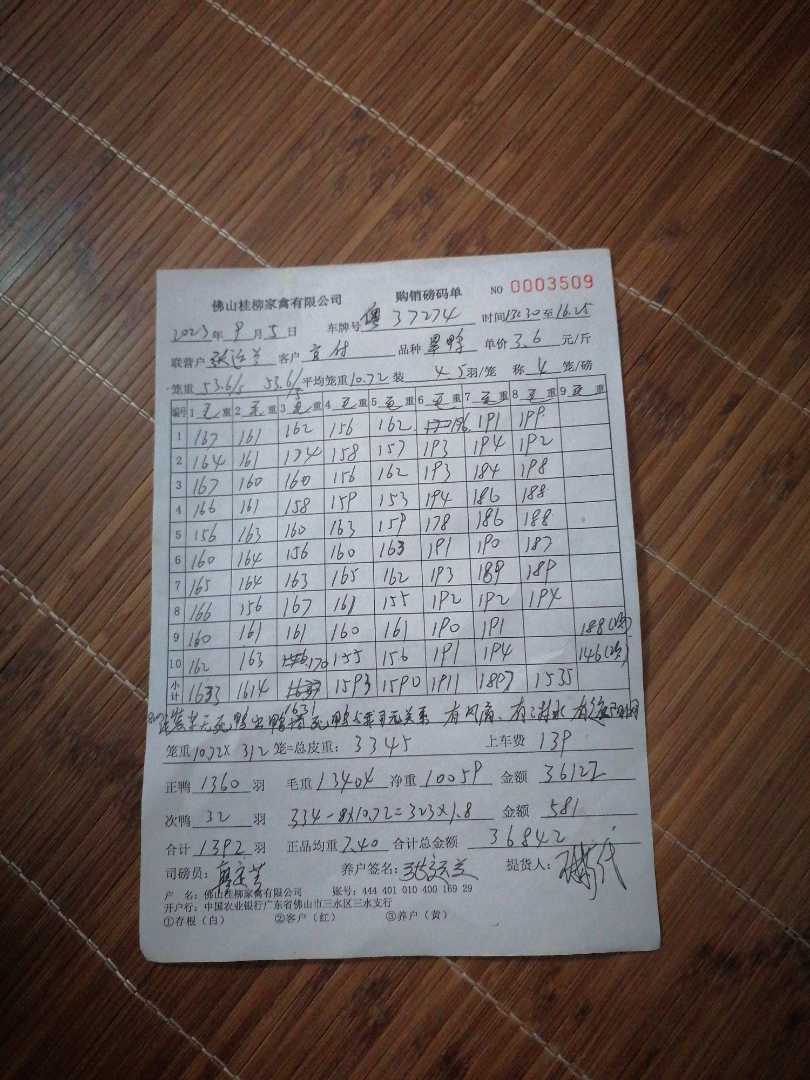 佛山桂柳家禽有限公司 购销磅码单 NO 0003509
2023年9月5日 车牌号 粤37274 时间13:30至16:25
联营户 客户 品种 单价3.6元/斤
笼重53.6/5 53.6/5 平均笼重10.72 装45羽/笼 称4笼/磅
编号 1毛重 2毛重 3毛重 4毛重 5毛重 6毛重 7毛重 8毛重 9毛重
1 167 161 162 156 162 196 191 199
2 164 161 174 158 157 193 194 192
3 167 160 160 156 162 193 184 198
4 166 161 158 159 153 194 186 188
5 156 163 160 163 159 178 186 188
6 160 164 156 160 163 191 190 187
7 165 164 163 165 162 193 189 189
8 166 156 167 161 155 192 192 194
9 160 161 161 160 161 190 191 188(次)
10 162 163 170 155 156 191 194 146(次)
小计 1633 1614 1631 1593 1590 1911 1897 1535
有风痛、有 水
笼重10.72×312笼=总皮重:3345 上车费139
正鸭1360羽 毛重13404 净重10059 金额36122
次鸭32羽 334-8×10.72=323×1.8 金额581
合计1392羽 正品均重7.40 合计总金额36842
司磅员: 养户签名: 提货人:
户 名:佛山桂柳家禽有限公司 账号:444 401 010 400 169 29
开户行:中国农业银行广东省佛山市三水区三水支行
①存根(白) ②客户(红) ③养户(黄)